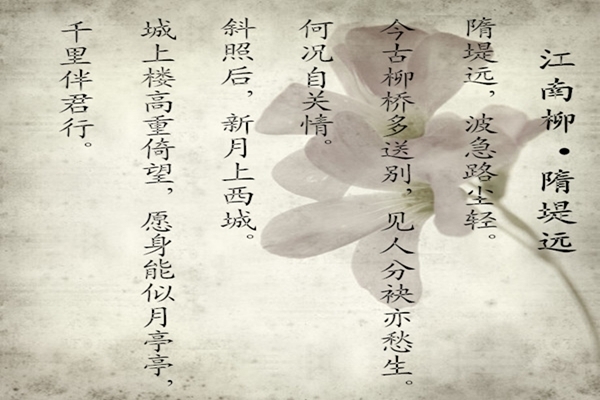 江南柳·隋堤远
隋堤远，波急路尘轻。
今古柳桥多送别，见人分袂亦愁生。
何况自关情。
斜照后，新月上西城。
城上楼高重倚望，愿身能似月亭亭，
千里伴君行。